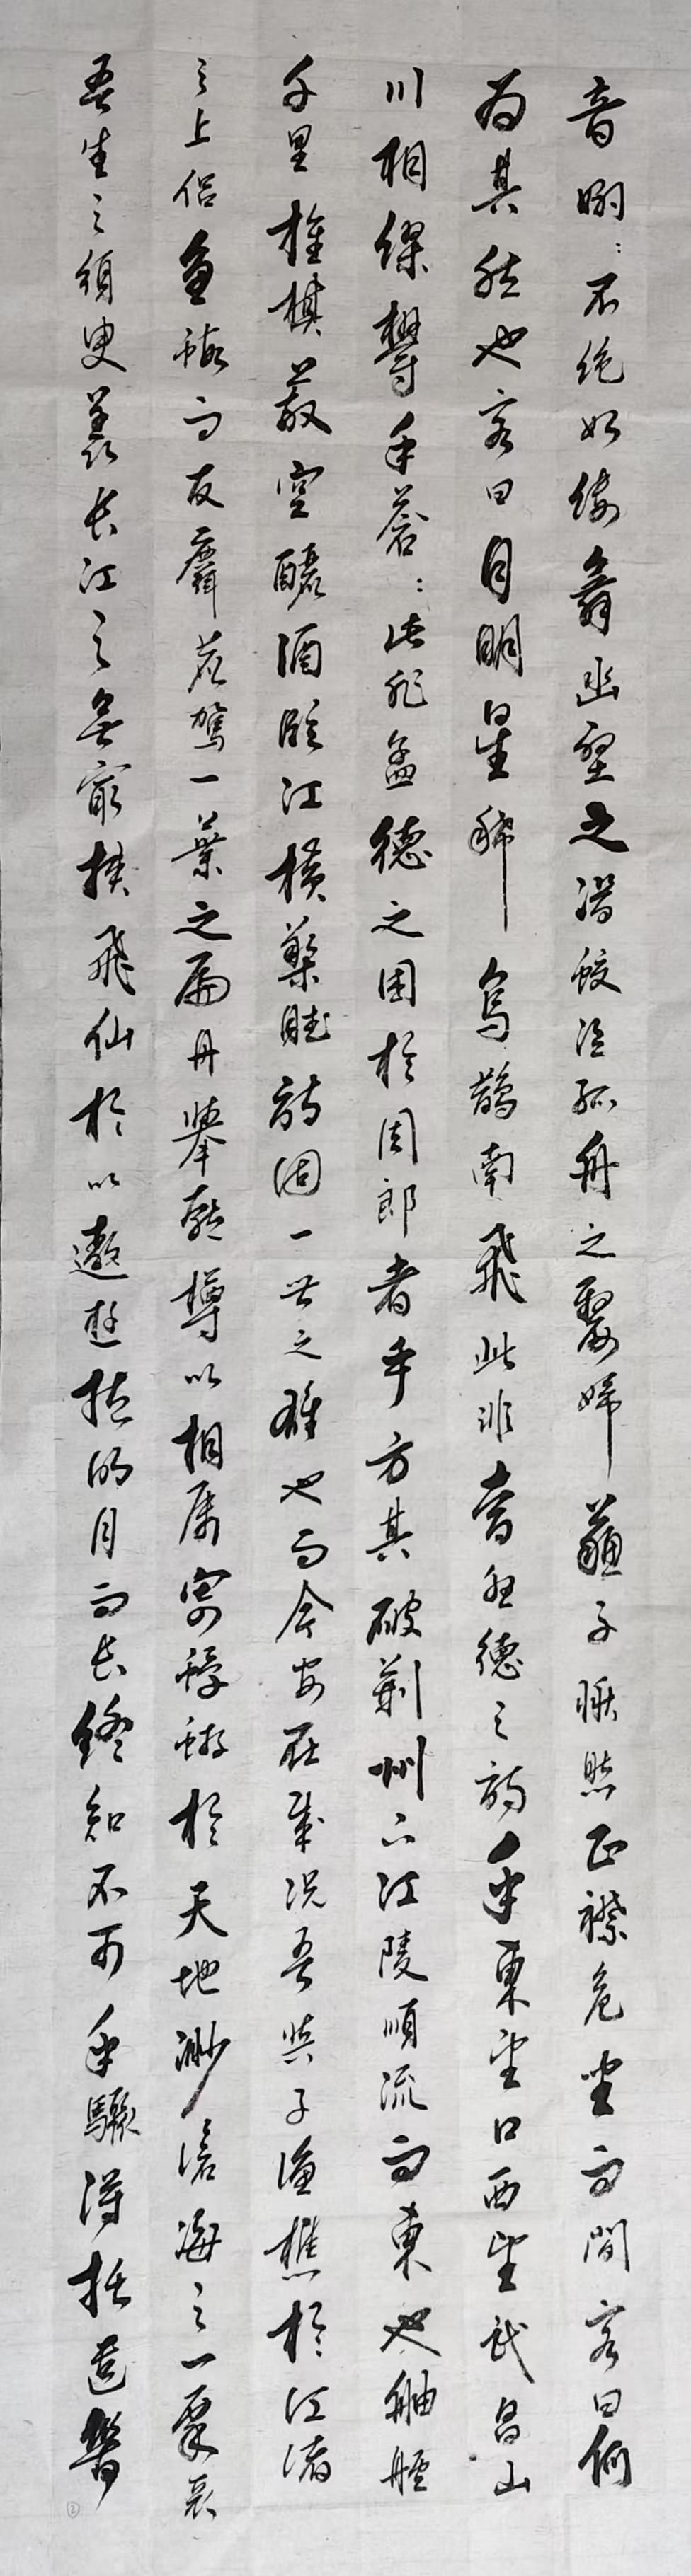 音嫋：不絕如縷舞幽壑之潛蛟泣孤舟之嫠婦蘇子愀然正襟危坐而問客曰何
為其然也客曰月明星稀烏鵲南飛此非曹孟德之詩乎東望口西望武昌山
川相繆鬱乎蒼：此非孟德之困於周郎者乎方其破荊州下江陵順流而東也舳艫
千里旌旗蔽空釃酒臨江橫槊賦詩固一世之雄也而今安在哉況吾與子漁樵於江渚
之上侶魚蝦而友麋鹿駕一葉之扁舟舉匏樽以相屬寄蜉蝣於天地渺滄海之一粟哀
吾生之須臾羨長江之無窮挾飛仙於以遨遊抱明月而長終知不可乎驟得托遺響
②